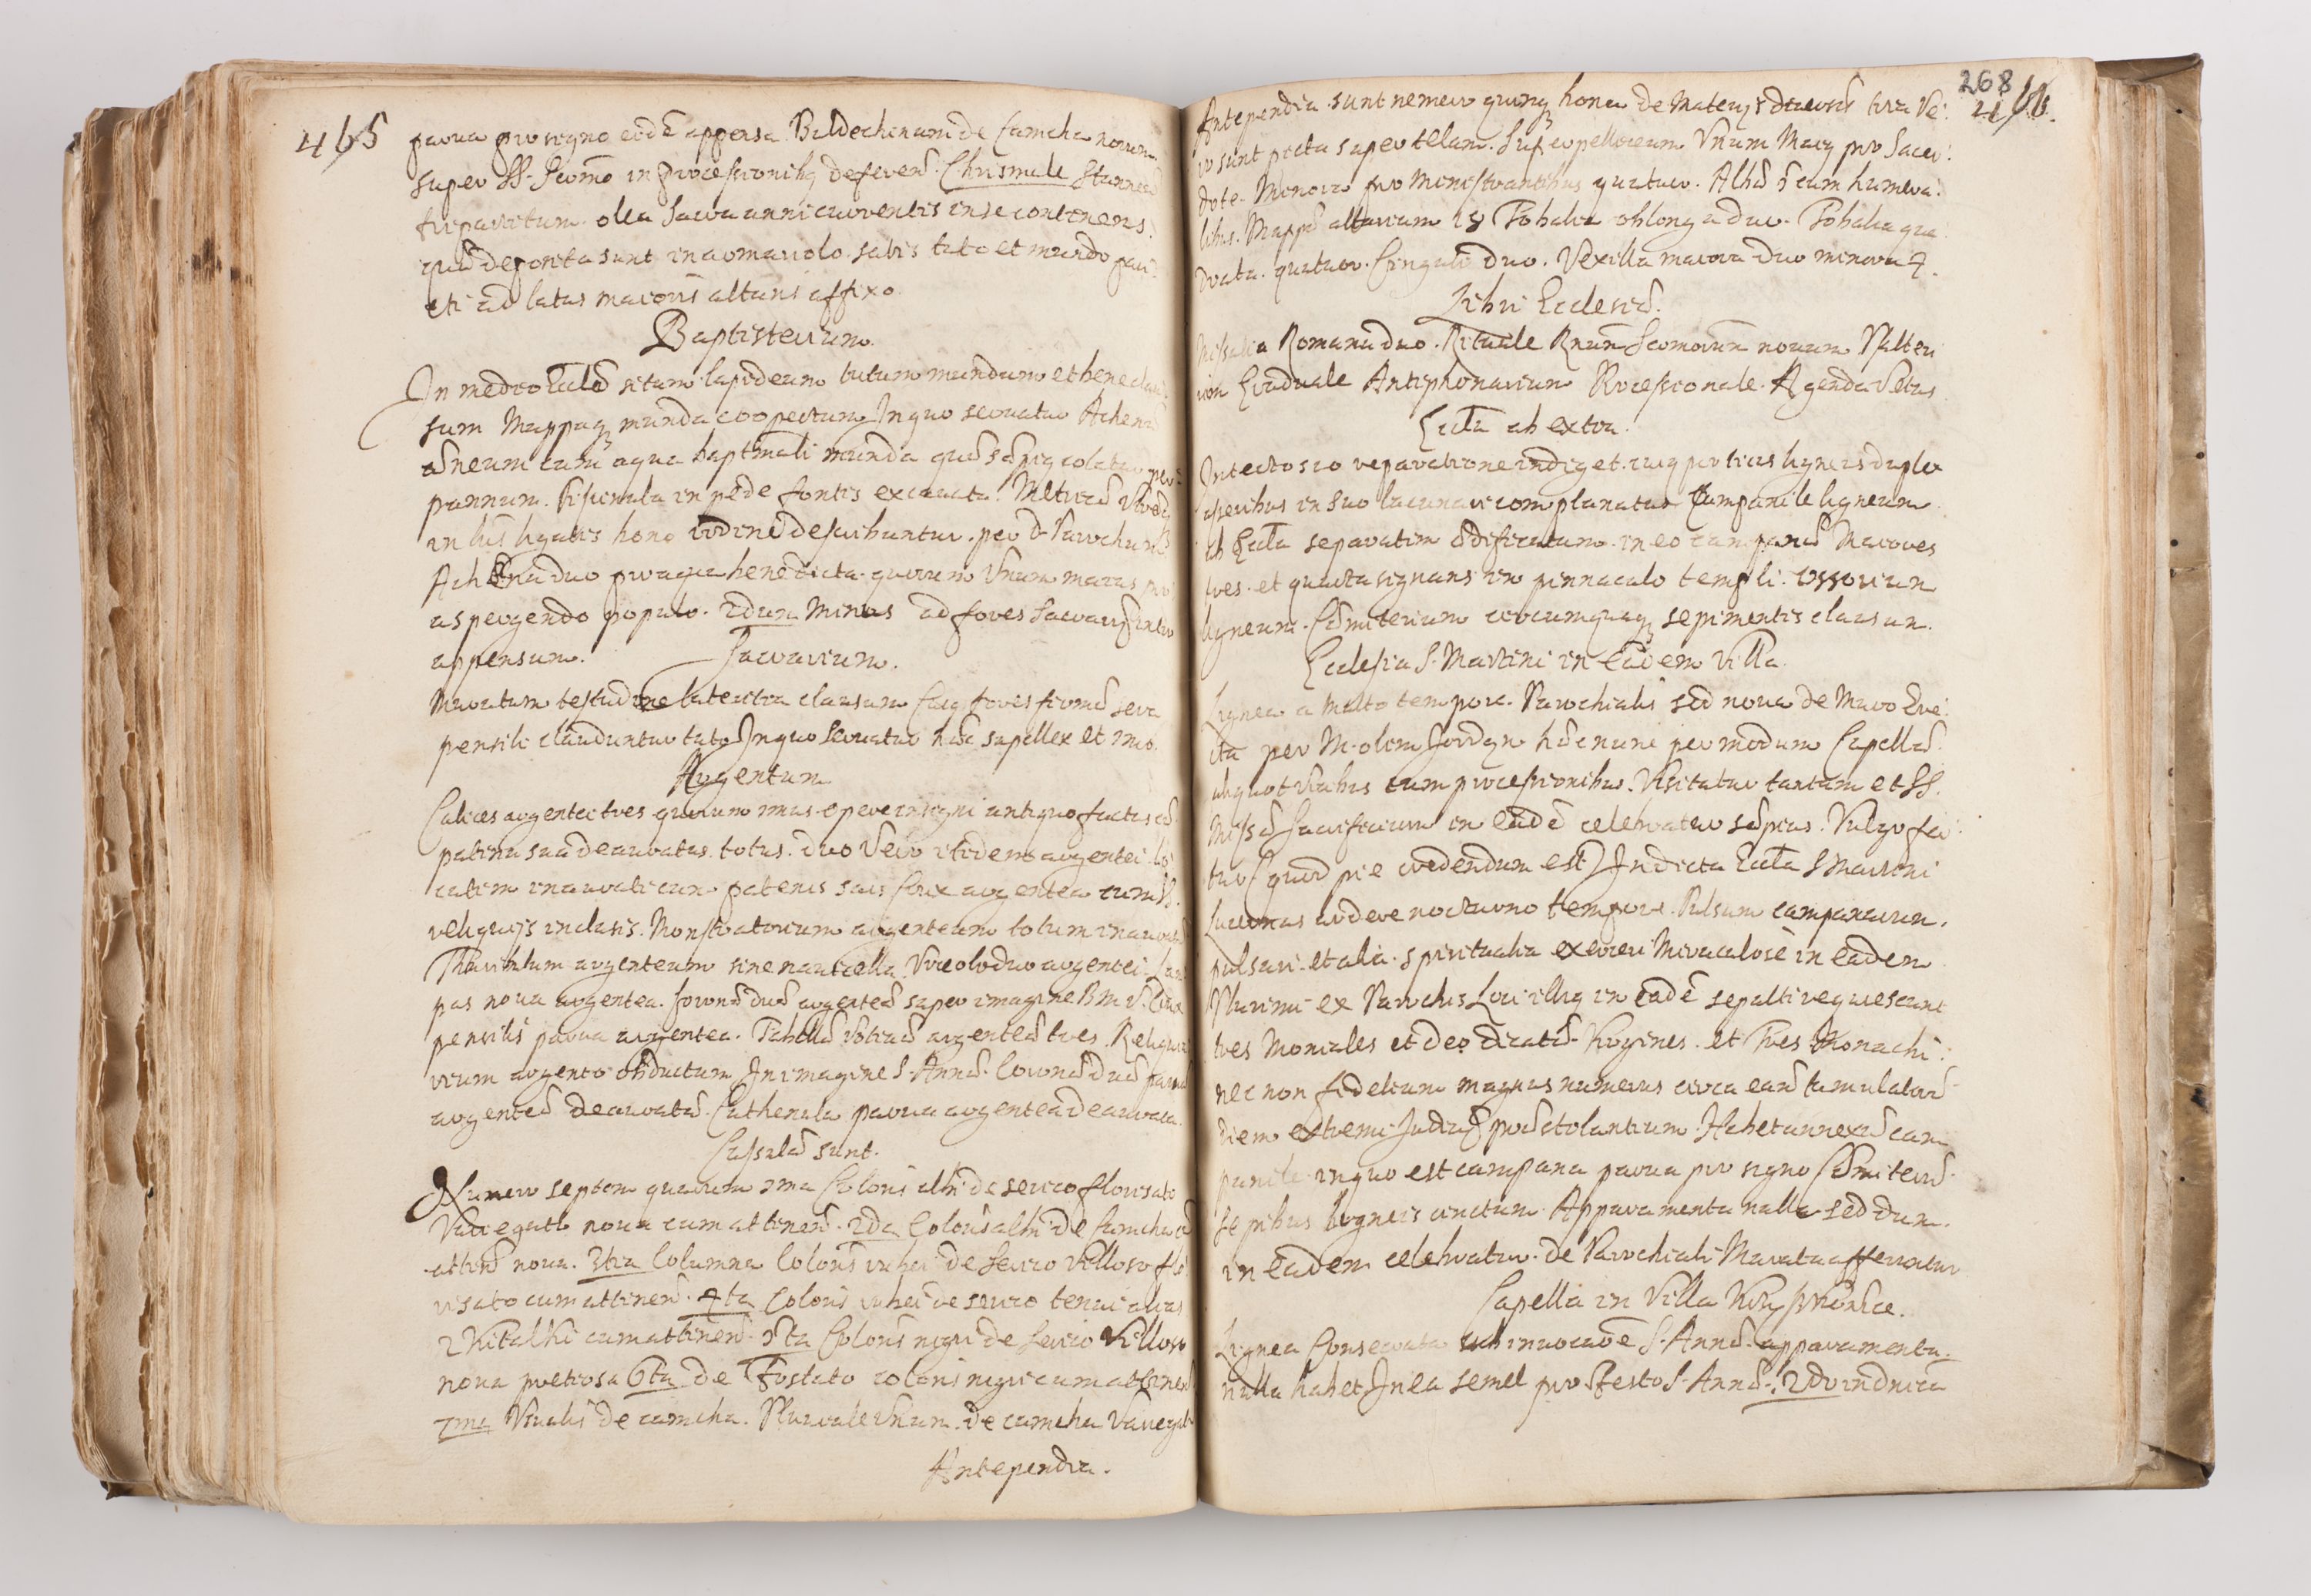 465
parua pro signo eidē appensa Baldechinum de Camcha nouum
super SS. Scōmo in processionibq deferend. Chrismale Stanneū
tripartitum. olea Sacra anni currentis in se continens.
quæ deposita sunt in aomariolo satis tuto et mundo pari:
eti ad latus maioris altaris affixo.
Baptisterium.
In medio Eccliæ situm lapideum tutum mundum et bene clau:
sum Mappaq munda coopertum In quo seruatur Ahenū
æneum cum aqua baptismali munda quæ sæpiq colatur per
pannum. Piscinula in pede fontis excauata. Metricæ
in libris ligatis bono ordine describuntur. per D. Parochum
Ahena duo pro aqua benedicta quorum Vnum maius pro
aspergendo populo. 2dum Minus ad fores Sacrarij
appensum.
Sacrarium.
Muratum testudine lateritia clausum Cuiq fores firmæ sera
pensili clauduntur tuto In quo Seruatur hæc supellex et imo.
Argentum
Calices argentei tres quorum vnus opere insigni antiquo factus cū
patina sua deauratus totus. duo Vero itidem argentei lo:
caliter inaurati cum patenis suis Crux argentea cum SS.
reliquijs inclusis. Monstratorium argenteum totum inaurat
Thuribulum argenteum sine nauicella. Vrceoli duo argentei. Lam
pas noua argentea. Coronæ duæ argenteæ super imagine B M V. Crux
pensilis parua argentea. Tabellæ votiuæ argenteæ tres. Reliquia
rium argento obductum In imagine S. Annæ. Coronæ duæ paruæ
argenteæ deauratæ. Cathenula parua argentea deaurata.
Casulæ sunt.
Numero septem quarum 1ma Coloris albi de serico florisato
Variegato noua cum attinend. 2da Coloris albi de Camcha cū
attinēd noua. 3tia Columna Coloris rubei de Serico Villoso flo
risato cum attinend. 4ta Coloris rubei de serico tenui alias
Kitalki cum attinend. 5ta Coloris nigri de Serico Villoso
noua pretiosa 6ta de Tostato coloris nigri cum attinend
7ma Vsualis de camcha. Pluuiale Vnum de camcha Variegat
Antependia.
268
466.
Antependia sunt nemero quinq bona de Materijs diuersis tria Ve:
ro sunt picta super telam. Superpelliceum Vnum Maiq pro Sacer:
dote. Minora pro Ministrantibus quatuor. Albæ 5 cum humera:
libus. Mappæ altarium 18 Tobalea oblonga duo. Tobalea qua
drata quatuor. Cinguli duo. Vexilla maiora duo minora 4.
Libri Ecclesiæ.
Missalia Romana duo. Rituale Rnum Scōmorum nouum Psalteri
um Graduale Antiphonarium Processionale. Agenda Vetus
Eccla ab extra.
In tecto suo reparatione indiget. cuiq porticus ligneis duplex
asseribus in suo lacunari complanatus Campanile ligneum
ab Eccla separatim ædificatum. in eo campanæ Maiores
tres. et quarta signans in pinnaculo templi. Ossorium
ligneum. Cæmiterium circumquaq sepimentis clausum.
Ecclesia S. Martini in Eadem Villa.
Lignea a multo tempore. Parochialis sed noua de Muro Ere:
cta per M. olem Jordan hæc nunc per modum Capellæ
aliquot Vicibus cum processionibus. Visitatur tantum et SS.
Missæ Sacrificium in Eadē celebratur sæpius. Vulgo fer:
tur (quod pie credendum est) In dicta Eccla S Martini
Lucernas ardere nocturno tempore. Pulsum campanarum.
pulsari. et alia spiritualia exerceri Miraculose in Eadem
Plurimi ex Parochis Loci illiq in eadē sepulti requiescunt
tres Moniales et deo dicatæ Virgines. et Tres Monachi:
nec non fidelium magnus numerus circa eam tumulatorū
diem extremi Judicij præstolantium. Habet annexū cam
panile in quo est campana parua pro signo Cæmiteriū
sepibus ligneis cinctum. Apparamenta nulla sed dum
in Eadem celebratur. de Parochiali Murata afferuntur
Capella in Villa
Lignea Consecrata sub inuocaōe S. Annæ. apparamenta
nulla habet In ea semel pro Festo S. Annæ. 2do in dnica